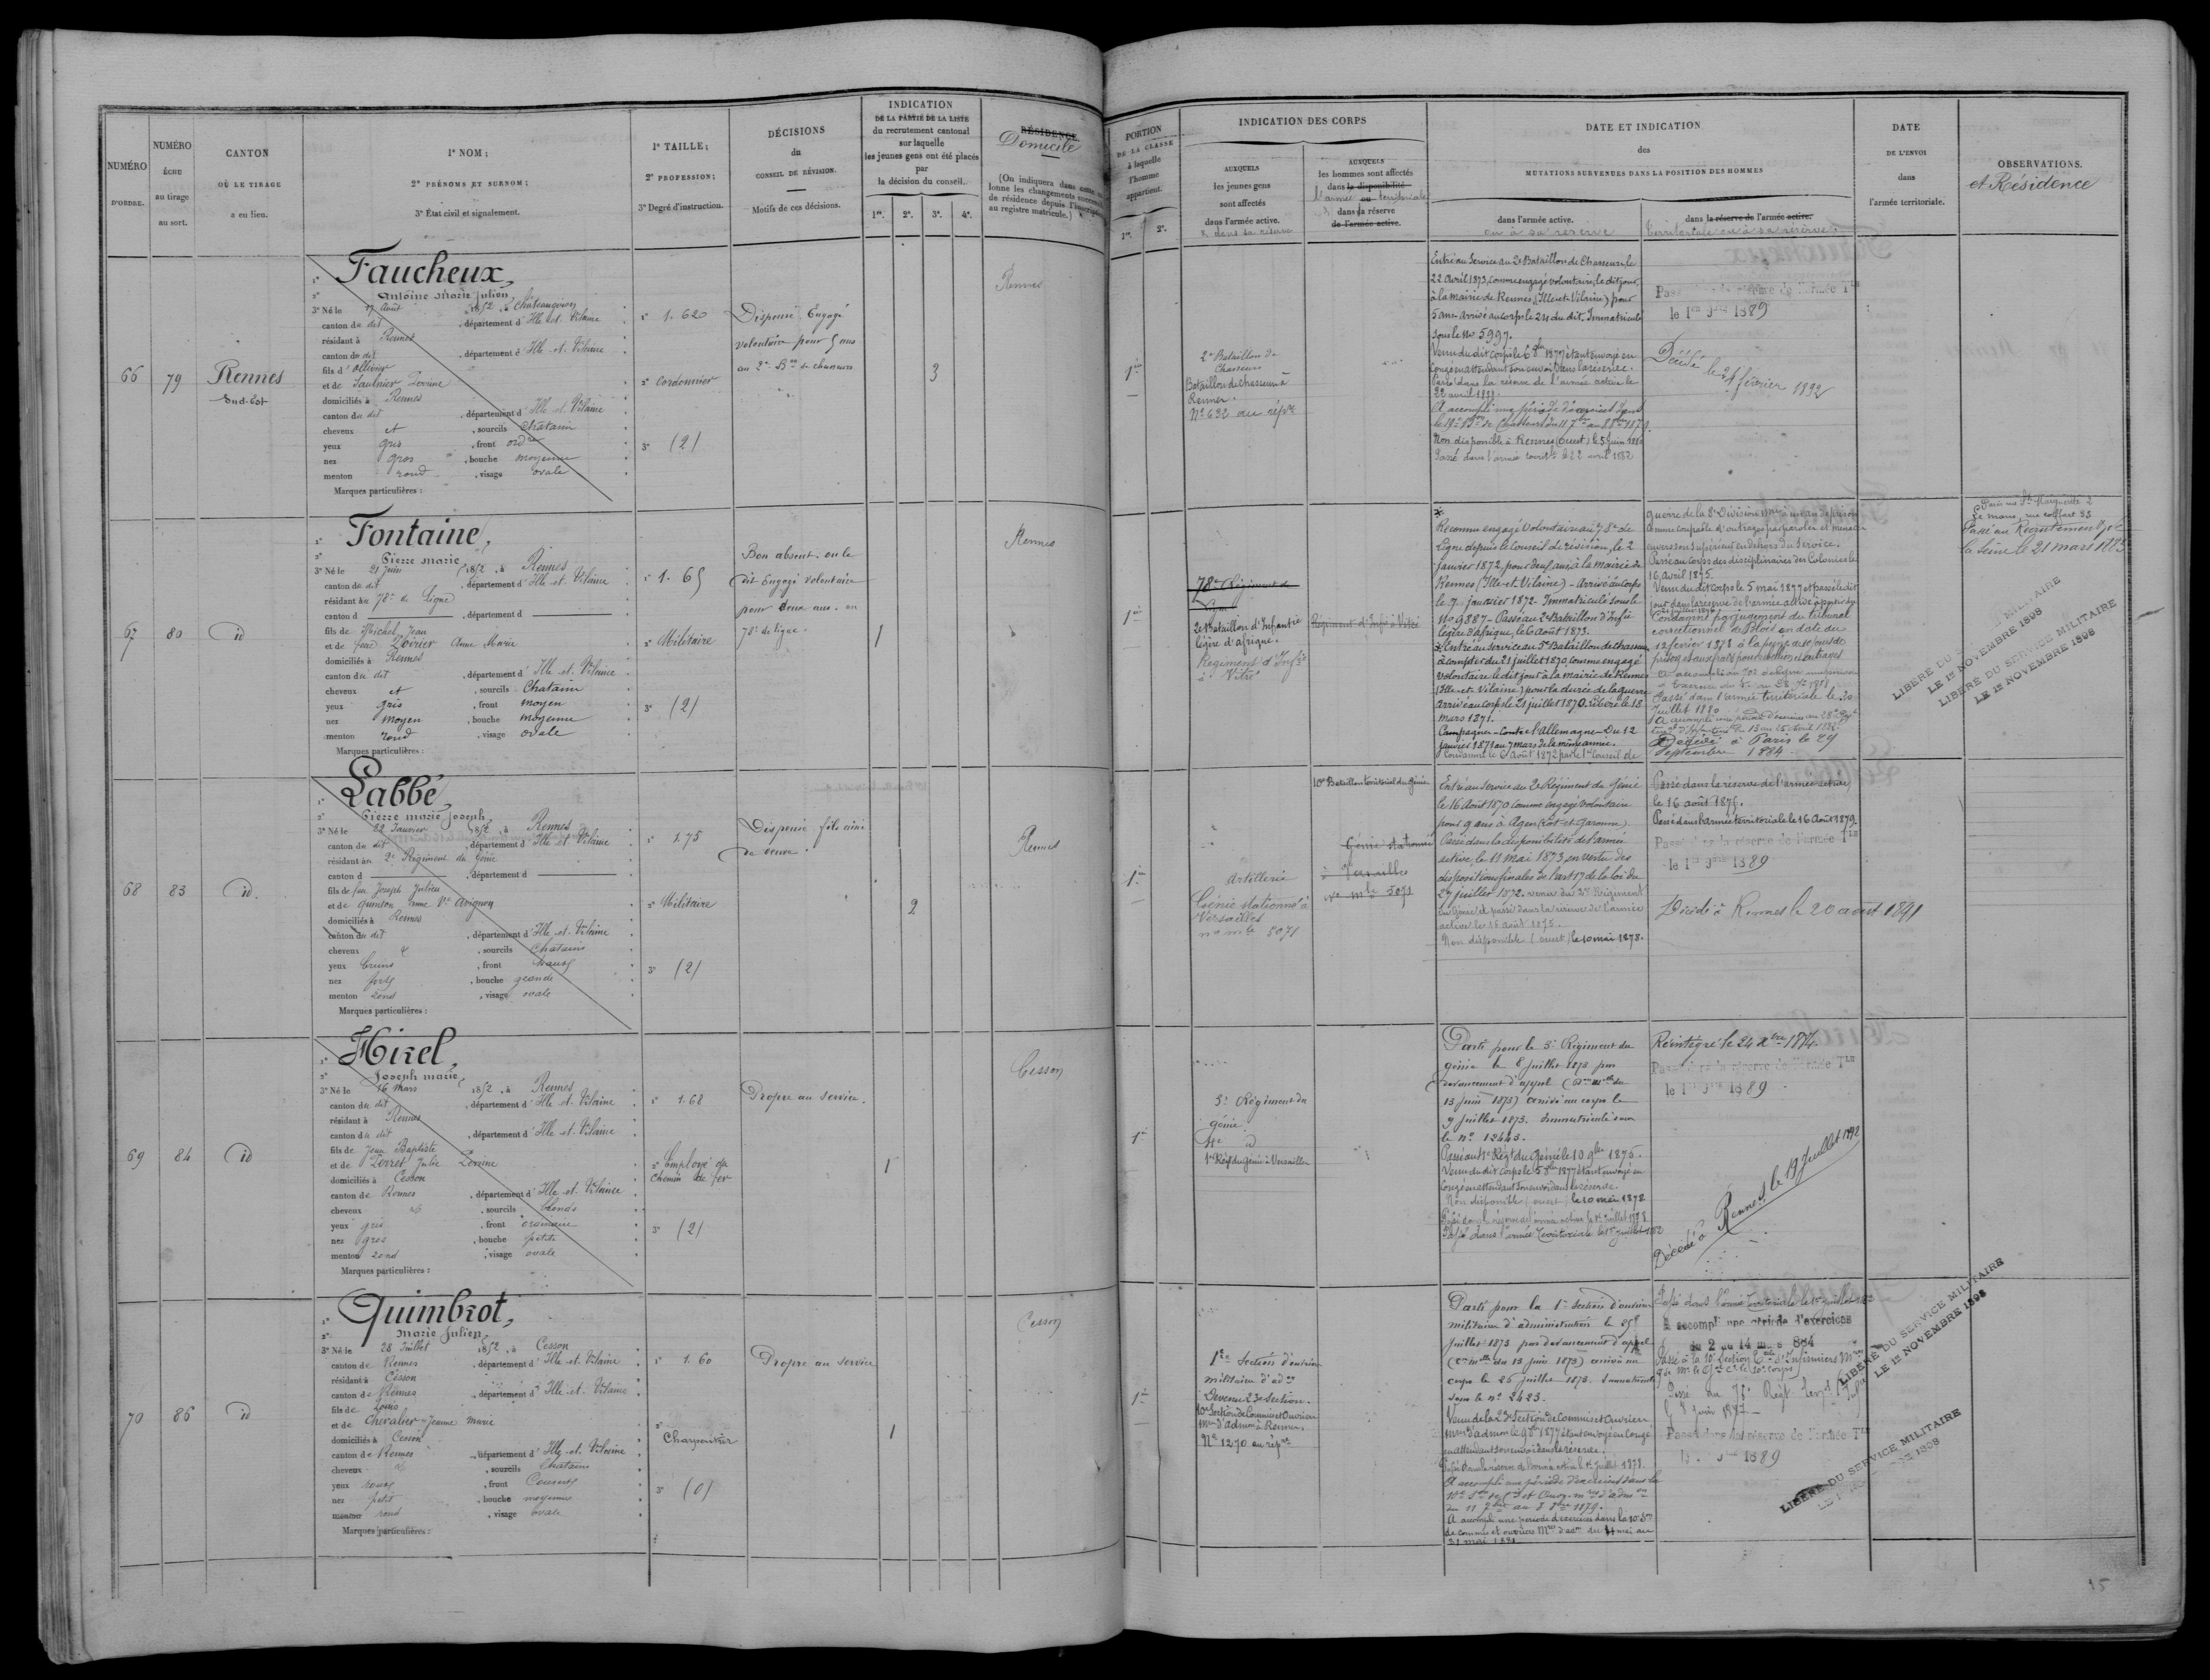 NUMÉRO
D'ORDRE.
NUMÉRO
ÉCHU
au tirage
au sort.
CANTON
OÙ LE TIRAGE
a eu lieu.
1° NOM;
2° PRÉNOMS ET SURNOM;
3° État civil et signalement.
1° TAILLE;
2° PROFESSION;
3° Degré d'instruction.
DÉCISIONS
du
CONSEIL DE RÉVISION.
Motifs de ces décisions.
INDICATION
DE LA PARTIE DE LA LISTE
du recrutement cantonal
sur laquelle
les jeunes gens ont été placés
par
la décision du conseil.
1re. 2e. 3e. 4e.
RÉSIDENCE
Domicile
PORTION
DE LA CLASSE
à laquelle
l'homme
appartient.
1re. 2e.
INDICATION DES CORPS
AUXQUELS
les jeunes gens
sont affectés
dans l'armée active.
& dans sa réserve
AUXQUELS
les hommes sont affectés
dans la disponibilité
l'armée ou territoriale
dans sa réserve
de l'armée active.
DATE ET INDICATION
des
MUTATIONS SURVENUES DANS LA POSITION DES HOMMES
dans l'armée active.
ou à sa réserve
dans la réserve de l'armée active.
territoriale ou à sa réserve
DATE
DE L'ENVOI
dans
l'armée territoriale.
OBSERVATIONS.
et Résidence
66
79
Rennes
Sud-Est
Faucheux,
Antoine Marie Julien,
3° Né le 17 Août 1852, à Chateaugiron
canton du dit, département d'Ille-et-Vilaine
résidant à Rennes
canton du dit, département d'Ille-et-Vilaine
fils d'Ollivier
et de Saulnier Perrine
domiciliés à Rennes
canton du dit, département d'Ille-et-Vilaine
cheveux et, sourcils Chatain
yeux gris, front ordre
nez gros, bouche moyenne
menton rond, visage ovale
Marques particulières:
1° 1.620
2° Cordonnier
3° (2)
Dispensé Engagé
volontaire pour 5 ans
au 2e Bon de chasseurs
3
Rennes
1re
2e Bataillon de
Chasseurs
Bataillon de chasseurs à
Rennes.
No 632 au rép.re
Entré au Service au 2e Bataillon de Chasseurs, le
22 Avril 1873, comme engagé volontaire, le dit jour,
à la mairie de Rennes, (Ille-et-Vilaine) pour
5 ans. Arrivé au corps le 24 du dit. Immatriculé
sous le No 5997.
Venu du dit corps le 6 8bre 1877 étant envoyé en
Congé en attendant son envoi dans la réserve.
Passé dans la réserve de l'armée active le
22 avril 1878.
A accompli une période d'exercices dans
Non disponible à Rennes (Ouest) le 5 Juin 1880
Passé dans l'armée territle le 22 avril 1882
Passé dans la réserve de l'armée Tle
le 1er 9bre 1889
Décédé le 24 février 1932
67
80
id
Fontaine,
Pierre marie
3° Né le 21 Juin 1852, à Rennes
canton du dit, département d'Ille-et-Vilaine
résidant au 78e de Ligne
canton d, département d
fils de Michel Jean
et de feue Poirier Anne Marie
domiciliés à Rennes
canton du dit, département d'Ille-et-Vilaine
cheveux et, sourcils Chatain
yeux gris, front moyen
nez moyen, bouche moyenne
menton rond, visage ovale
Marques particulières:
1° 1.65
2° Militaire
3° (2)
Bon absent. ou le
dit Engagé volontaire
pour deux ans. au
78e de ligne.
1
Rennes
1re
78e Régiment de
Ligne
2e Bataillon d'Infantie
légère d'afrique.
Régiment d'Infie
à Vitré
Régiment d'Infie à Vitré
Reconnu engagé volontaire au 78e de
Ligne depuis le conseil de révision, le 2
janvier 1872, pour deux ans, à la mairie de
Rennes (Ille-et-Vilaine) - Arrivé au corps
le 7 Janvier 1872 - Immatriculé sous le
No 9887 - Passé au 2e Bataillon d'Infie
légère d'afrique, le 6 Août 1873.
Entré au service au 5e Bataillon de chasseurs
à compter du 21 juillet 1870, comme engagé
volontaire le dit jour à la mairie de Rennes
(Ille-et-Vilaine) pour la durée de la guerre
arrivé au corps le 21 juillet 1870. Libéré le 18
mars 1871.
Campagne - Contre l'Allemagne - Du 12
janvier 1871 au 7 mars de la même année.
Condamné le 6 Août 1872 par le 1er Conseil de
guerre de la 8e Division
comme coupable d'outrages par paroles et menaces
envers son supérieur en dehors du service.
Passé au Corps des disciplinaires des Colonies le
16 avril 1875.
Venu du dit Corps le 5 mai 1877 et passé le dit
jour dans la réserve de l'armée active
Condamné par jugement du tribunal
correctionnel de Blois en date du
12 février 1878 à la peine de
Passé dans l'armée territoriale le 20
Juillet 1880
A accompli une période d'exercices au 28e Régt
Décédé à Paris le 29
Septembre 1884
Paris rue Ste Marguerite 2
Le mans, rue
Passé au Recrutement de
la Seine le 21 mars 1883
LIBÉRÉ DU SERVICE MILITAIRE
LE 1er NOVEMBRE 1898
LIBÉRÉ DU SERVICE MILITAIRE
LE 1er NOVEMBRE 1898
68
83
id.
Labbé,
Pierre marie Joseph,
3° Né le 22 Janvier 1852, à Rennes
canton du dit, département d'Ille-et-Vilaine
résidant au 2e Régiment du Génie
canton d, département d
fils de feu Joseph Julien
et de Quinton Anne Ve Avignon
domiciliés à Rennes
canton du dit, département d'Ille-et-Vilaine
cheveux &, sourcils Chatains
yeux bruns, front haut
nez fort, bouche grande
menton rond, visage ovale
Marques particulières:
1° 1.75
2° Militaire
3° (2)
Dispensé fils ainé
de veuve.
2
Rennes
1re
Artillerie
Génie stationné à
Versailles
no mle 5071
10e Bataillon territorial du Génie
Génie stationné
à Versailles
no mle 5071
Entré au service au 2e Régiment du Génie
le 16 Août 1870 comme engagé volontaire
pour 9 ans à Agen (Lot-et-Garonne)
Passé dans la disponibilité de l'armée
active, le 11 mai 1873, en vertu des
dispositions finales de l'art 17 de la loi du
27 juillet 1872. venu du 2e Régiment
du Génie et passé dans la réserve de l'armée
active le 16 août 1875.
Non disponible (ouest) le 10 mai 1878.
Passé dans la réserve de l'armée active
le 16 août 1875.
Passé dans l'armée territoriale le 16 Août 1879.
Passé dans la réserve de l'armée Tle
le 1er 9bre 1889
Décédé à Rennes le 20 août 1891
69
84
id
Mirel,
Joseph marie,
3° Né le 16 mars 1852, à Rennes
canton du dit, département d'Ille-et-Vilaine
résidant à Rennes
canton du dit, département d'Ille-et-Vilaine
fils de Jean Baptiste
et de Perret Julie Perrine
domiciliés à Cesson
canton de Rennes, département d'Ille-et-Vilaine
cheveux et, sourcils blonds
yeux gris, front ordinaire
nez gros, bouche petite
menton rond, visage ovale
Marques particulières:
1° 1.68
2° Employé du
Chemin de fer
3° (2)
Propre au service.
1
Cesson
1re
3e Régiment du
génie.
1er Régt du Génie à Versailles
Parti pour le 3e Régiment du
génie le 8 juillet 1873 par
devancement d'appel (Con mlle du
13 juin 1873) arrivé au corps le
9 juillet 1873. Immatriculé sous
le No 12443.
Passé au 1er Régt du Génie le 10 9bre 1875.
Venu du dit corps le 5 8bre 1877 étant envoyé en
Congé en attendant son envoi dans la réserve.
Non disponible (ouest) le 10 mai 1878
Passé dans la réserve de l'armée active le 1er juillet 1878
Passé dans l'armée territoriale le 1er juillet 1882
Réintégré le 24 Xbre 1874.
Passé dans la réserve de l'armée Tle
le 1er 9bre 1889
Décédé à Rennes, le 19 Juillet 1892
70
86
id
Quimbrot,
Marie Julien,
3° Né le 28 Juillet 1852, à Cesson
canton de Rennes, département d'Ille-et-Vilaine
résidant à Cesson
canton de Rennes, département d'Ille-et-Vilaine
fils de Louis
et de Chevalier Jeanne marie
domiciliés à Cesson
canton de Rennes, département d'Ille-et-Vilaine
cheveux, sourcils Chatains
yeux roux, front Couvert
nez petit, bouche moyenne
menton rond, visage ovale
Marques particulières:
1° 1.60
2° Charpentier
3° (0)
Propre au service
1
Cesson
1re
1re Section d'ouvriers
militaires d'adon
Devenu 23e Section.
10e Section de Commis et Ouvriers
mres d'admon à Rennes.
No 1270 au répre
Parti pour la 1re Section d'ouvriers
militaires d'administration le 25
juillet 1873 par devancement d'appel
(Con mlle du 13 juin 1873) arrivé au
corps le 26 juillet 1873. Immatriculé
sous le no 2423.
Venu de la 23e Section de Commis et Ouvriers
mres d'admon le 9 8bre 1877 étant envoyé en Congé
en attendant son envoi dans la réserve.
Passé dans la réserve de l'armée active le 1er juillet 1878.
A accompli une période d'exercices dans la
du 11 7bre au 8 8bre 1879.
A accompli une période d'exercices dans la 10e Son
de commis et ouvriers Mres d'adm. du 4 mai au
31 mai 1881
Passé dans l'armée territoriale le 1er juillet 1882
A accompli une période d'exercices
du 2 au 14 mai 884
Passé à la 10e Section Tle d'Infirmiers Mres
Passé au 75e Régt terral d'Infie
le 8 Juin 1887
Passé dans la réserve de l'armée Tle
le 1er 9bre 1889
LIBÉRÉ DU SERVICE MILITAIRE
LE 1er NOVEMBRE 1898
LIBÉRÉ DU SERVICE MILITAIRE
15